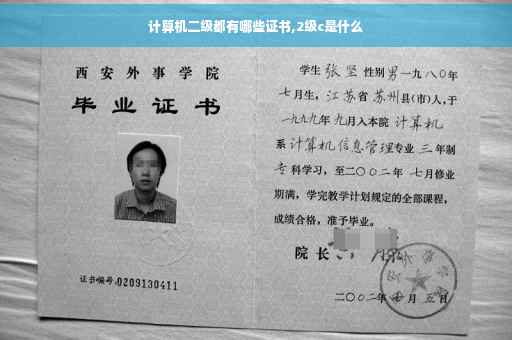 计算机二级都有哪些证书,2级c是什么
西安外事学院
毕业证书
证书编号:0209130411
学生张坚性别男一九八0年
七月生,江苏省苏州县(市)人,于
一九九九年九月入本院计算机
系计算机信息管理专业三年制
专科学习,至二〇〇二年七月修业
期满,学完教学计划规定的全部课程,
成绩合格,准予毕业。
院长
二〇〇二年 月五日